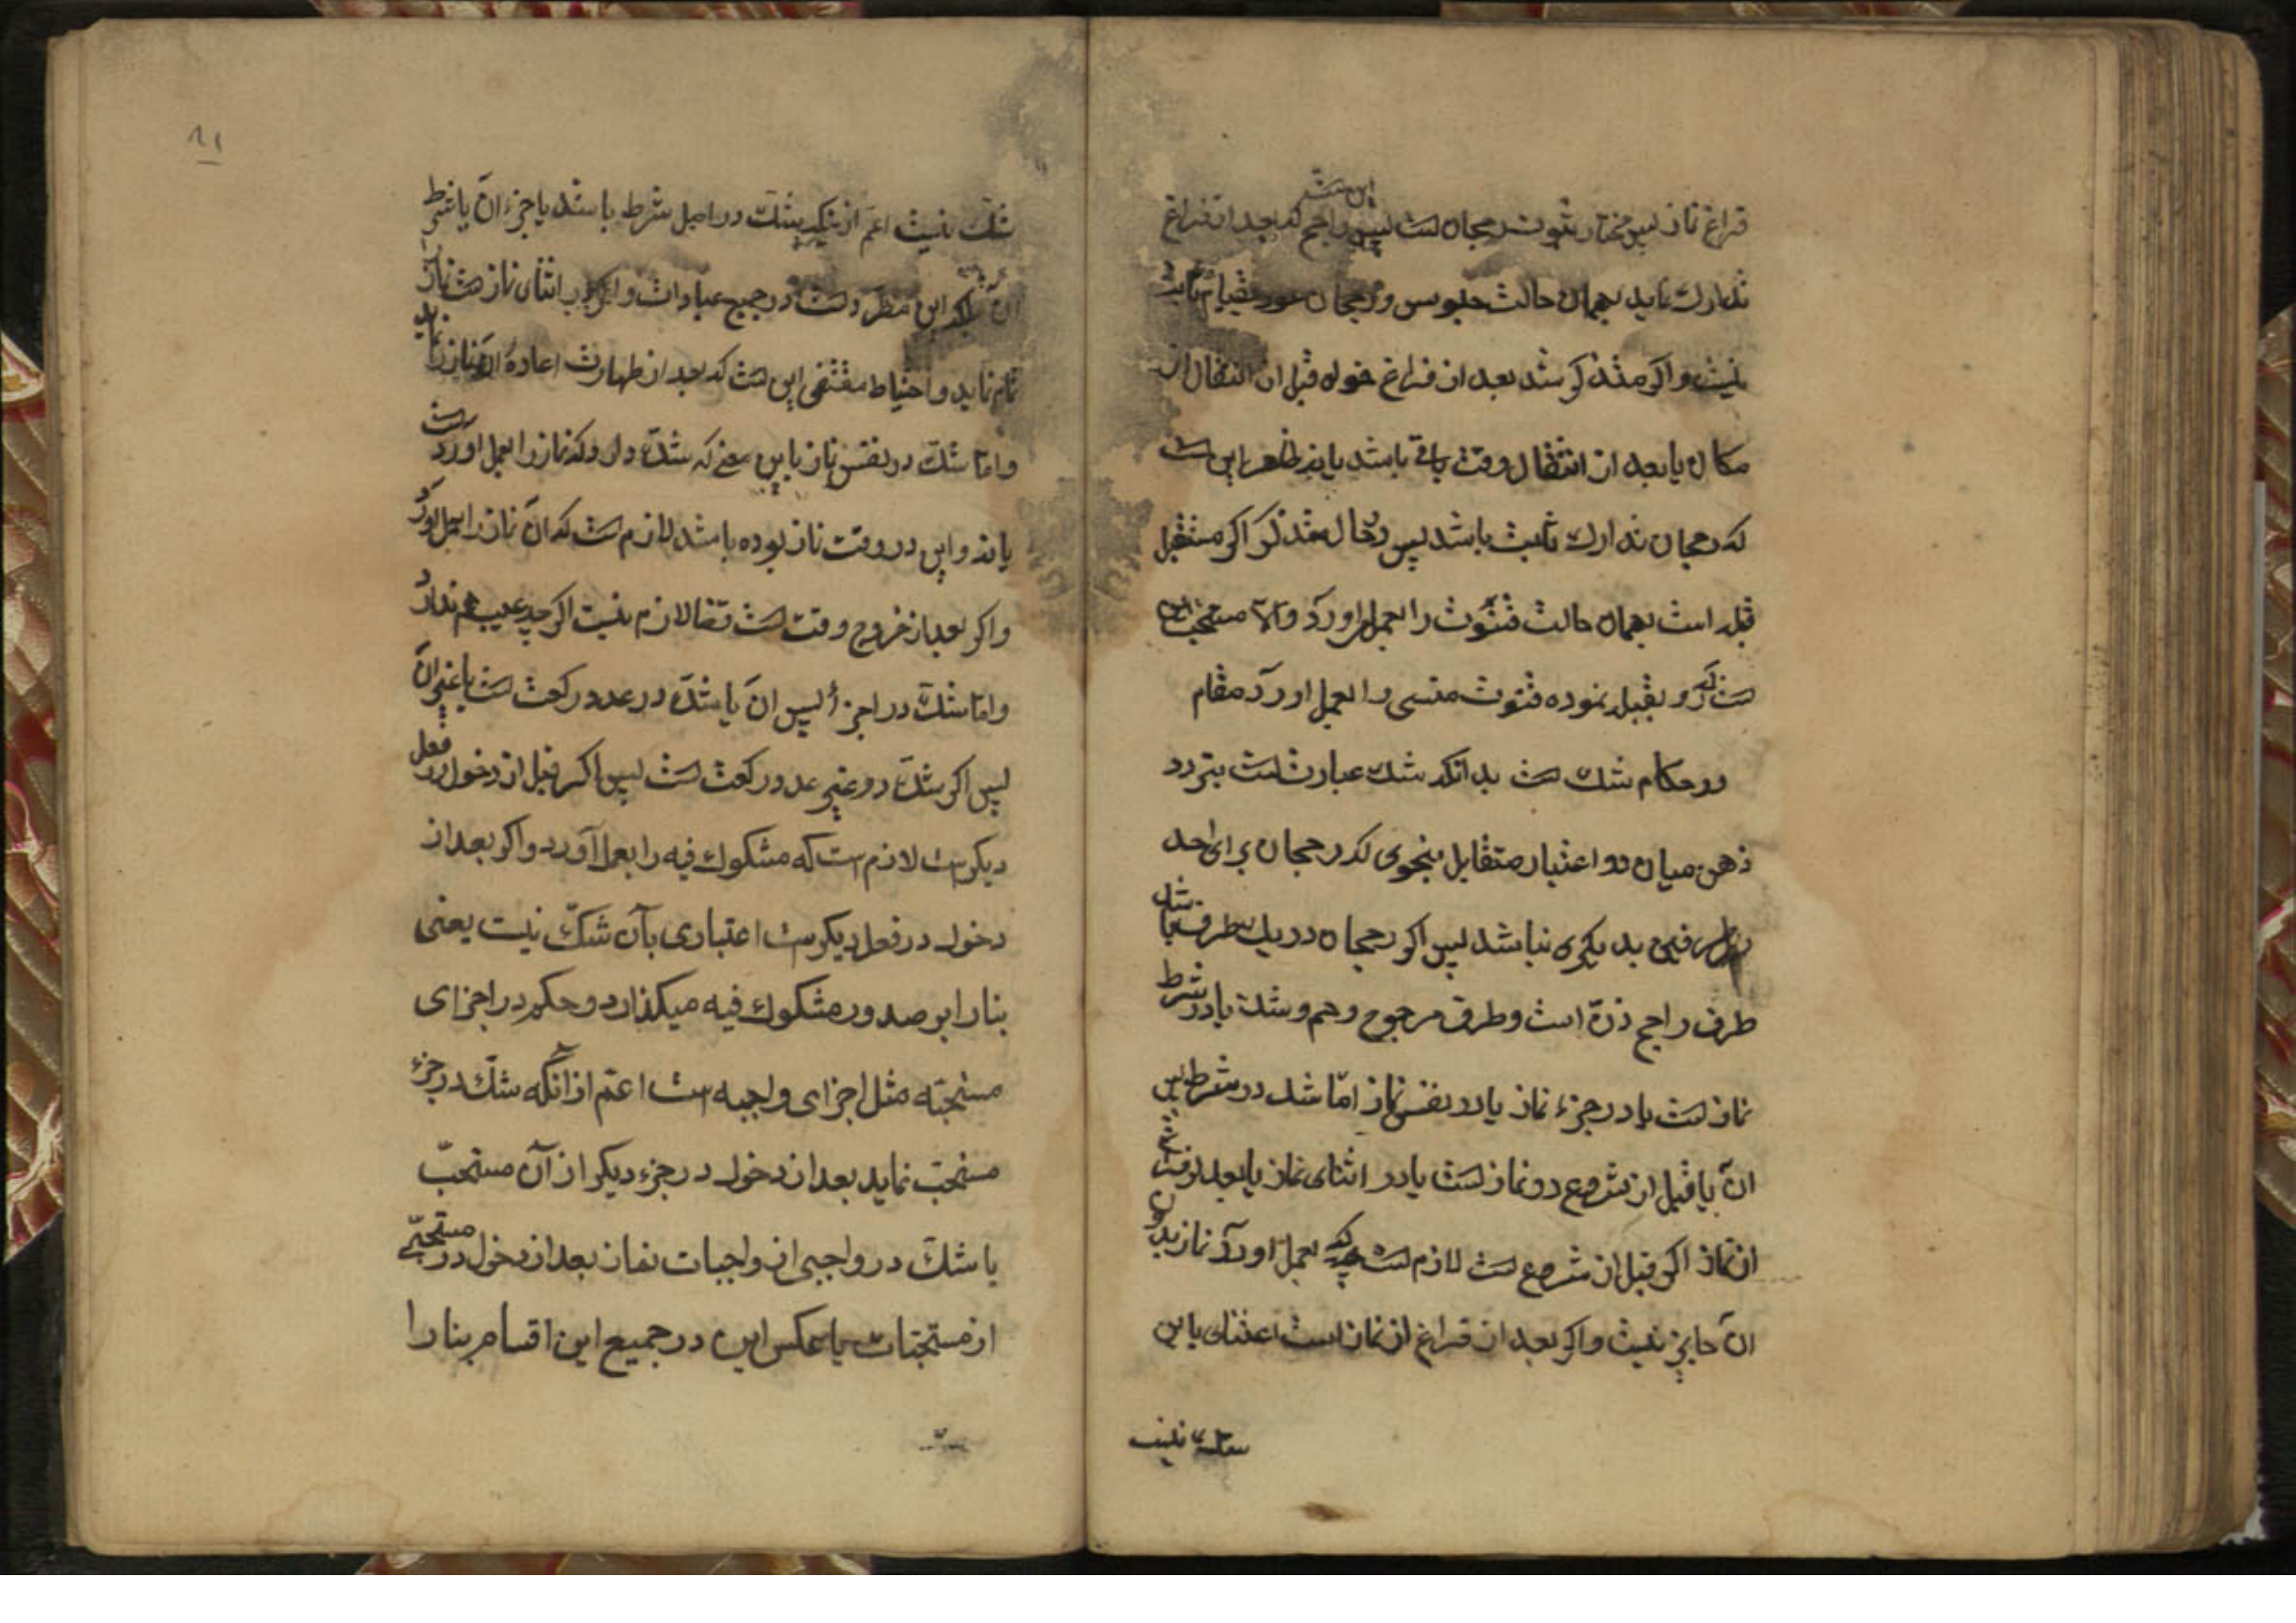 این است
فراغ نماز پس مختار ثبوت رجحان است پس راجح که بعد از فراغ
تدارک نماید بهمان حالت جلوس و رجحان عود بقیام ثابت
نیست و اکر متذکر شد بعد از فراغ خواه قبل از انتقال از
مکان یا بعد از انتقال وقت باقی باشد یا نه ظاهر این است
که رجحان تدارک ثابت باشد پس در حال تذکر اکر مستقبل
قبله است بهمان حالت قنوت را بعمل اورد والا مستحب
است که رو بقبله نموده قنوت منسی را بعمل اورد مقام
در حکام شک است بدانکه شک عبارت است بتردد
ذهن میان دو اعتبار متقابل بنحوی که رجحان برای احد
طرفین بدیکری نباشد پس اکر رجحان در یک طرف باشد
طرف راجح است و طرف مرجوح وهم و شک یا در شرط
نماز است یا در جزء نماز یا در نفس نماز امّا شک در شرط پس
انّ یا قبل از شروع در نماز است یا در اثنای نماز یا بعد از
از نماز اکر قبل از شروع است لازم است که بعمل اورد نماز بدون
انّ جایز نیست و اکر بعد از فراغ از نماز است اعتنای باین
شک نیست
۸۱
شک نیست اعم از اینکه شک در اصل شرط باشد یا جزء انّ یا شرط
انّ بلکه این مطرد است در جمیع عبادات و اکر در اثنای نماز است نماز
تمام نماید و احتیاط مقتضی این است که بعد از طهارت اعادهٔ نماز نماید
و امّا شک در نفس نماز باین معنی که شک دارد که نماز را بعمل اورده است
یا نه و این در وقت نماز بوده باشد لازم است که انّ نماز را بعمل اورد
و اکر بعد از خروج وقت است قضا لازم نیست اکر چه عیب هم ندارد
و امّا شک در اجزأ پس انّ یا شک در عدد رکعت است یا غیر انّ
پس اکر شک در غیر عدد رکعت است پس اکر قبل از دخول در فعل
دیکر است لازم است که مشکوک فیه را بعمل آورد و اکر بعد از
دخول در فعل دیکر است اعتباری بآن شکّ نیست یعنی
بنا را بر صدور مشکوک فیه میکذارد و حکم در اجزای
مستحبّه مثل اجزای واجبه است اعمّ از انکه شکّ در جزء
مستحبّ نماید بعد از دخول در جزء دیکر از آن مستحبّ
یا شکّ در واجبی از واجبات نماز بعد از دخول در مستحبّی
از مستحبّات یا عکس این در جمیع این اقسام بنا را